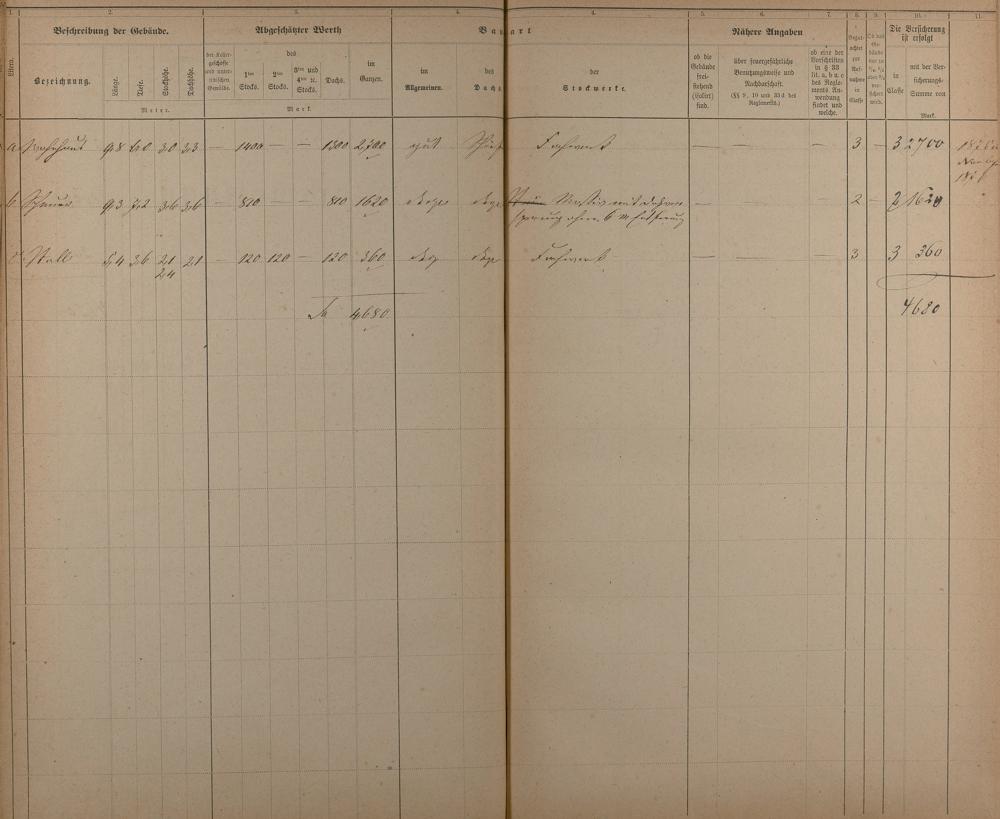 1. 2. 3. 4. 4. 5. 6. 7. 8. 9. 10. 11.
Beschreibung der Gebäude. Abgeschätzter Werth Bauart Nähere Angaben Die Versicherung ist erfolgt
Litera. Bezeichnung. Länge. Tiefe. Stockhöhe. Dachhöhe.
Meter.
der Kellergeschosse und unterirdischen Gewölbe.
des
1ten Stocks. 2ten Stocks. 3ten und 4ten ꝛc. Stocks. Dachs.
im Ganzen.
Mark.
im Allgemeinen. des Dachs der Stockwerke.
ob die Gebäude freistehend (isolirt) sind.
über feuergefährliche Benutzungsweise und Nachbarschaft.
(§§ 9, 10 und 33d des Reglements.)
ob eine der Vorschriften in § 33 lit. a, b u. c des Reglements Anwendung findet und welche.
in Classe
mit der Versicherungs-Summe von
Mark.
a Wohnhaus 9,8 6,0 3,0 3,3 — 1400 — — 1300 2700 gut Fachwerk — — — 3 — 3 2700
b Scheuer 9,3 7,2 3,6 3,6 — 810 — — 810 1620 Massiv mit — — — 2 — 2 1620
c Stall 5,4 3,6 2,1 2,1 — 120 120 — 120 360 Fachwerk — — — 3 — 3 360
2,4
Sa 4680. 4680